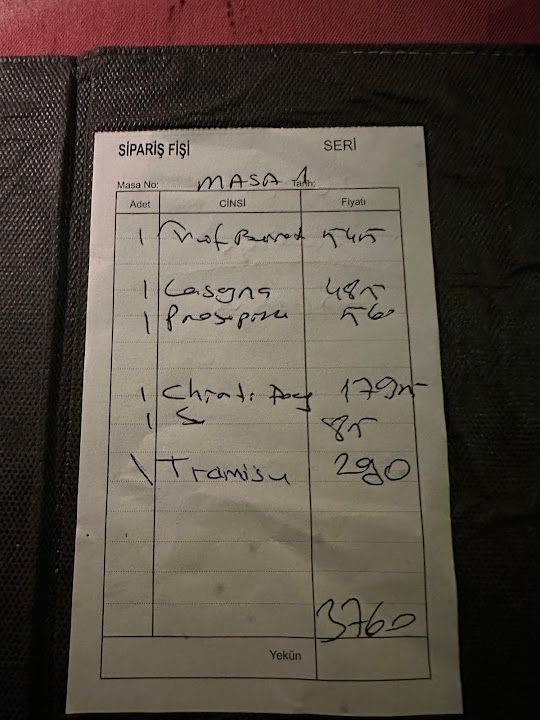 SİPARİŞ FİŞİ SERİ
Masa No: MASA 1 Tarih:
Adet CİNSİ Fiyatı
1 545
1 Lasagna 485
1 560
1 Chianti 1795
1 85
1 Tramisu 290
3760
Yekün